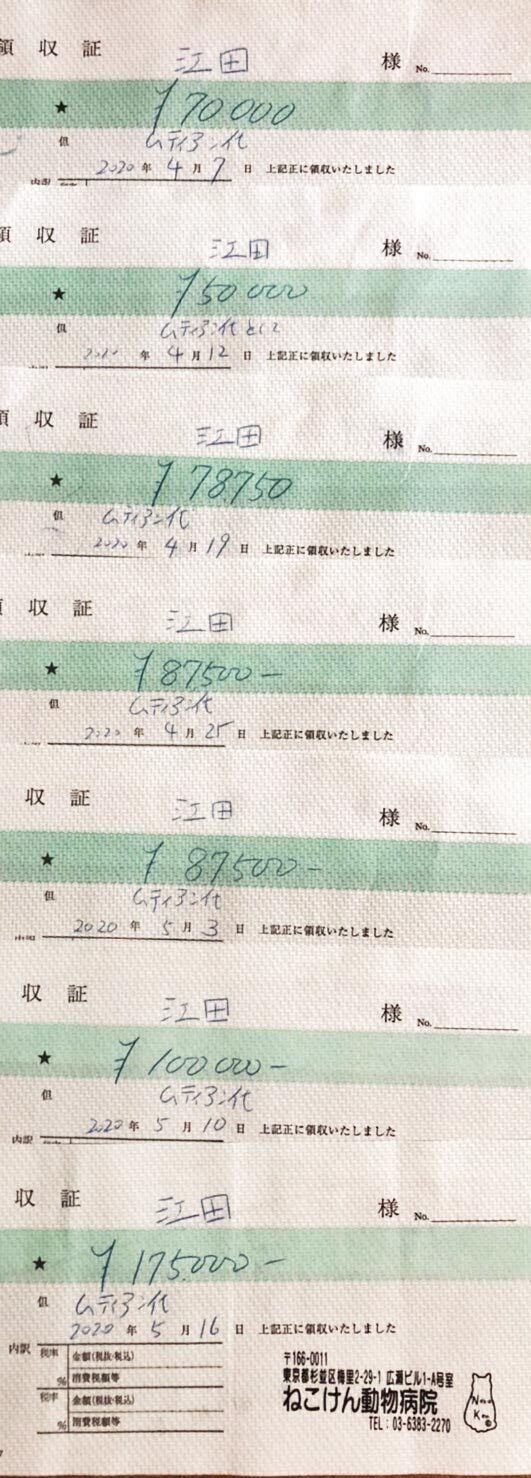 領 収 証 江田 様 No.
★ ¥70000
但 ムティアン代
2020 年 4 月 7 日 上記正に領収いたしました
内訳
領 収 証 江田 様 No.
★ ¥50000
但 ムティアン代として
2020 年 4 月 12 日 上記正に領収いたしました
領 収 証 江田 様 No.
★ ¥78750
但 ムティアン代
2020 年 4 月 19 日 上記正に領収いたしました
収 証 江田 様 No.
★ ¥87500-
但 ムティアン代
2020 年 4 月 25 日 上記正に領収いたしました
収 証 江田 様 No.
★ ¥87500-
但 ムティアン代
2020 年 5 月 3 日 上記正に領収いたしました
収 証 江田 様 No.
★ ¥100000-
但 ムティアン代
2020 年 5 月 10 日 上記正に領収いたしました
内訳
収 証 江田 様 No.
★ ¥175000-
但 ムティアン代
2020 年 5 月 16 日 上記正に領収いたしました
内訳 税率 % 金額(税抜・税込)
消費税額等
税率 % 金額(税抜・税込)
消費税額等
〒166-0011
東京都杉並区梅里2-29-1 広瀬ビル1-A号室
ねこけん動物病院
TEL : 03-6383-2270